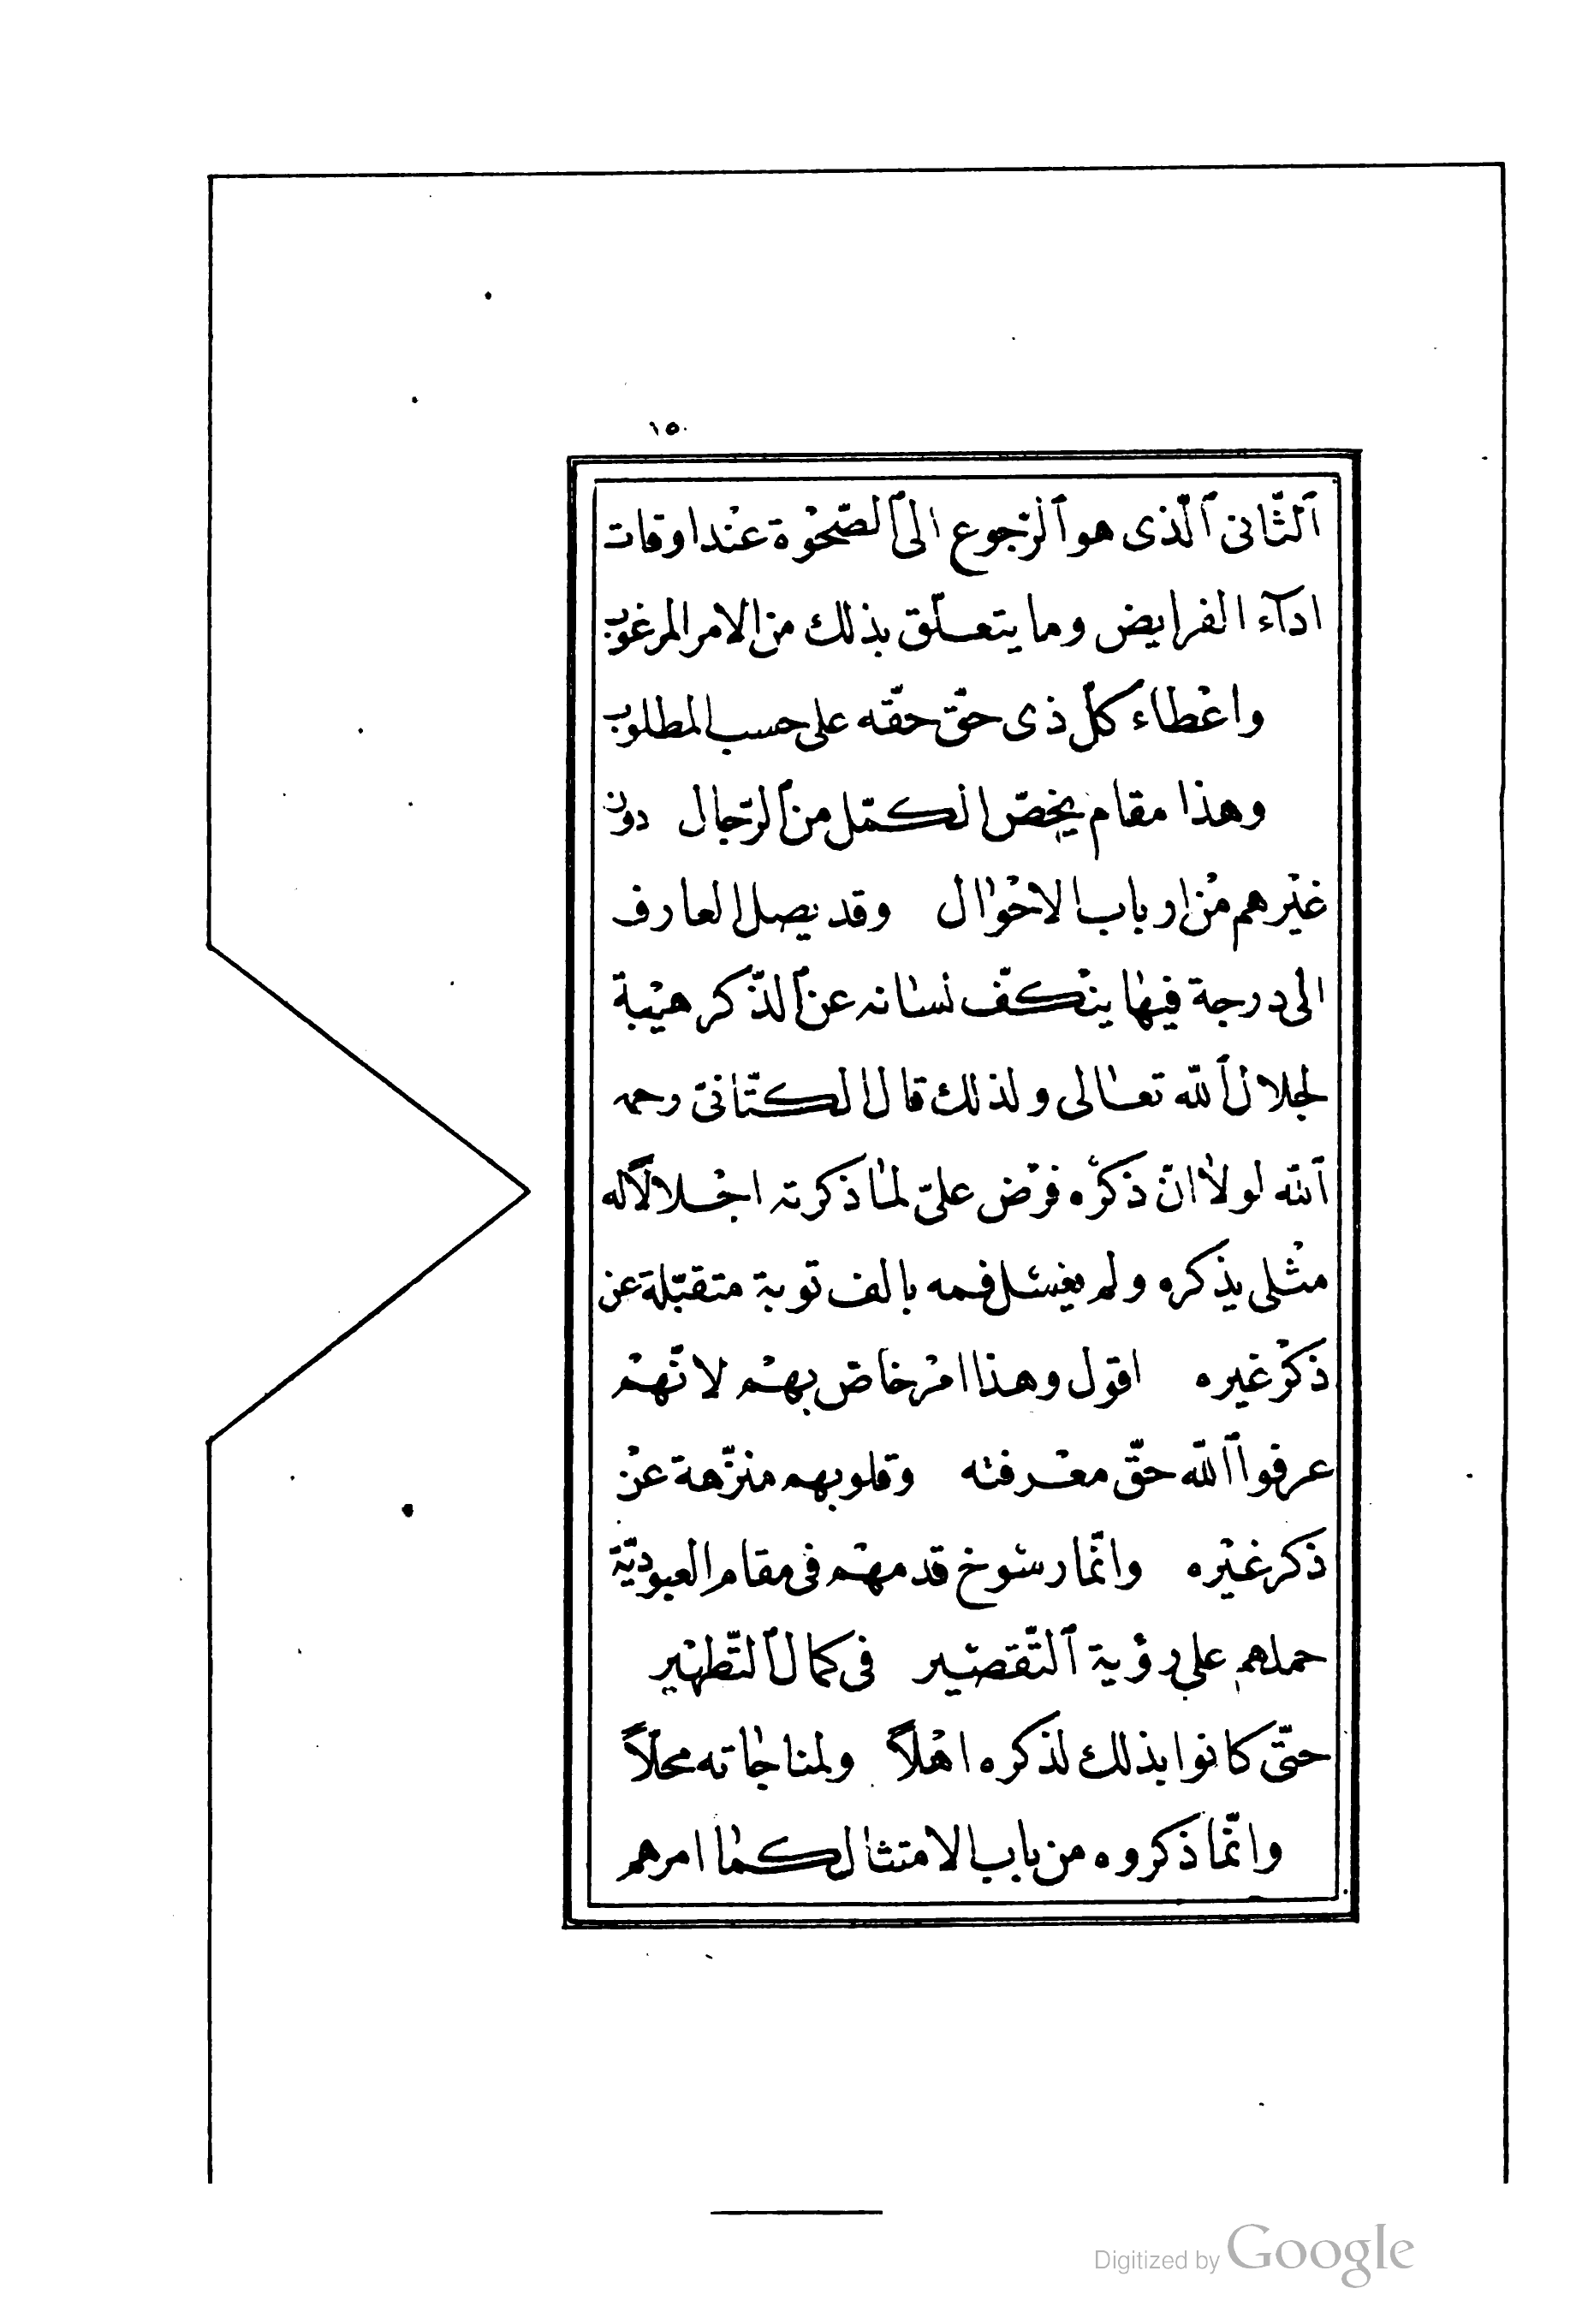 ١٥
ٱلثّانى ٱلّذى هو ٱلرّجوع الى ٱلصّحْوة عنْد اوقات
ادآء الفرايض وما يتعلّق بذلك من الامر المرغوب
واعْطاء كلّ ذى حقّ حقّه على حسب المطلوب
وهذا مقام يخصّ الكمّل من ٱلرّجال دون
غيْرهم منْ ارباب الاحْوال وقد يصل العارف
الى درجة فيها ينْكفّ لسانه عن ٱلذّكر هيْبة
لجلال ٱللّه تعالى ولذلك قال الكتّانىّ رحمه
ٱللّه لولا انّ ذكْره فرْض علىّ لما ذكرته اجْلالاً له
مثْلى يذكره ولم يغسل فمه بالف توبة متقبّلة عن
ذكْر غيره اقول وهذا امْر خاصّ بهمْ لانّهمْ
عرفوا ٱللّه حقّ معْرفته وقلوبهم منزّهة عنْ
ذكر غيْره وانّما رسوخ قدمهمْ فى مقام العبوديّة
حملهم على رؤية ٱلتّقصير فى كمال ٱلتّطهير
حتّى كانوا بذلك لذكره اهْلاً ولمناجاته محلاًّ
وانّما ذكروه من باب الامتثال كما امرهم
Digitized by Google